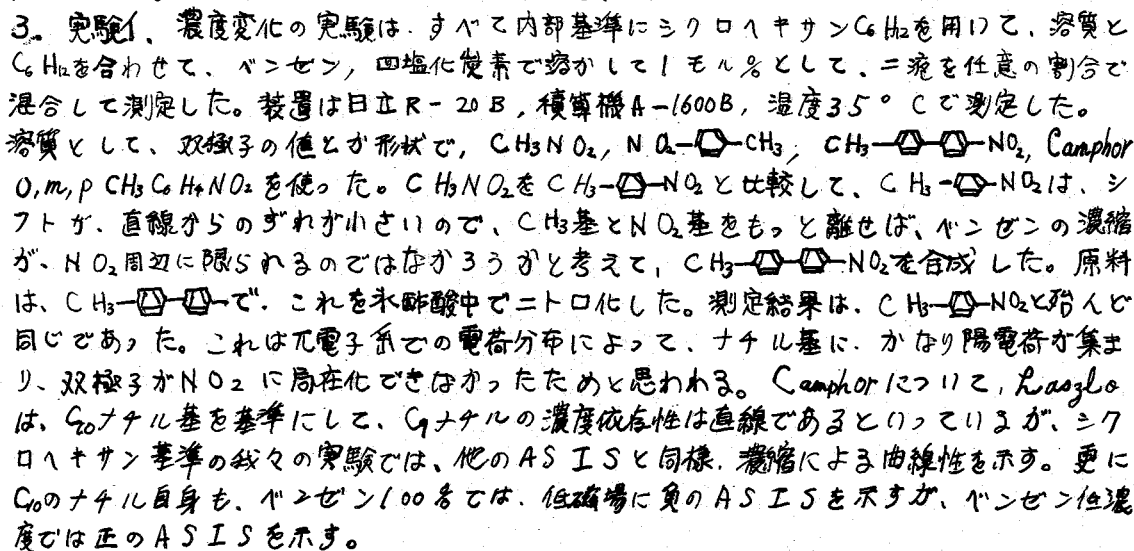 3. 実験1、濃度変化の実験は、すべて内部基準にシクロヘキサンC6H12を用いて、溶質と
C6H12を合わせて、ベンゼン, 四塩化炭素で溶かして1モル%として、二液を任意の割合で
混合して測定した。装置は日立R-20B, 積算機A-1600B, 温度35°Cで測定した。
溶質として、双極子の値とか形状で, CH3NO2, NO2-⌬-CH3, CH3-⌬-⌬-NO2, Camphor
O,m,p CH3C6H4NO2を使った。CH3NO2をCH3-⌬-NO2と比較して、CH3-⌬-NO2は、シ
フトが、直線からのずれが小さいので、CH3基とNO2基をもっと離せば、ベンゼンの濃縮
が、NO2周辺に限られるのではなかろうかと考えて, CH3-⌬-⌬-NO2を合成した。原料
は、CH3-⌬-⌬-で、これを氷酢酸中でニトロ化した。測定結果は、CH3-⌬-NO2と殆んど
同じであった。これはπ電子系での電荷分布によって、メチル基に、かなり陽電荷が集ま
り、双極子がNO2に局在化できなかったためと思われる。Camphorについて, Laszlo
は、C10メチル基を基準にして、C9メチルの濃度依存性は直線であるといっているが、シク
ロヘキサン基準の我々の実験では、他のASISと同様、濃縮による曲線性を示す。更に
C10のメチル自身も、ベンゼン100%では、低磁場に負のASISを示すが、ベンゼン低濃
度では正のASISを示す。